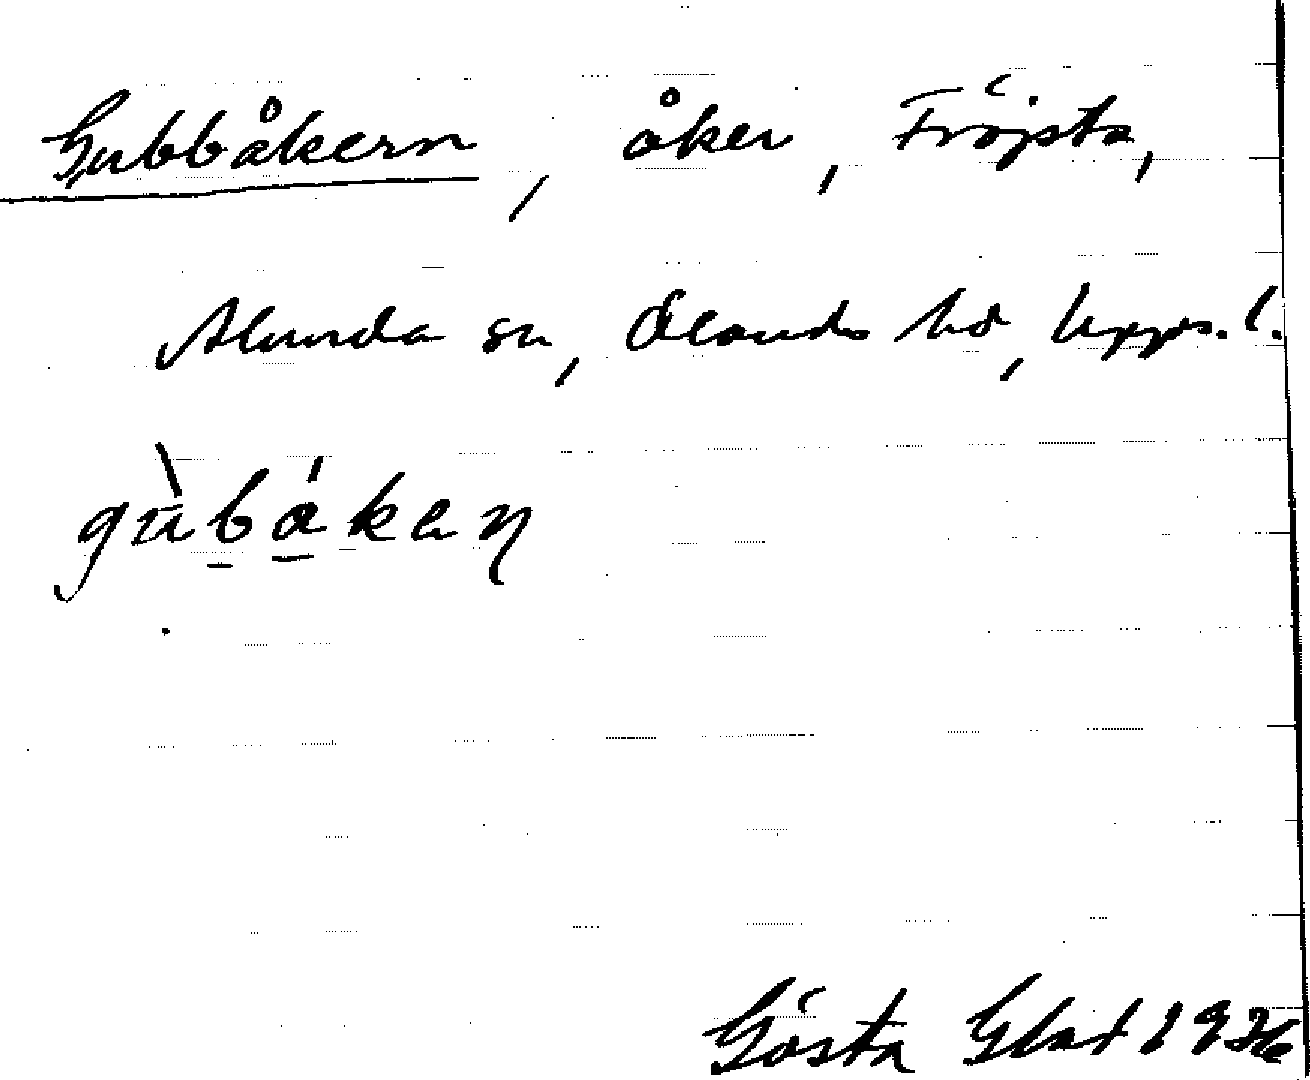 Gubbåkern, åker, Fröjsta,
Alunda sn, Ölands hd, Upps. l.
gùbákaɳ
Gösta Glad 1926